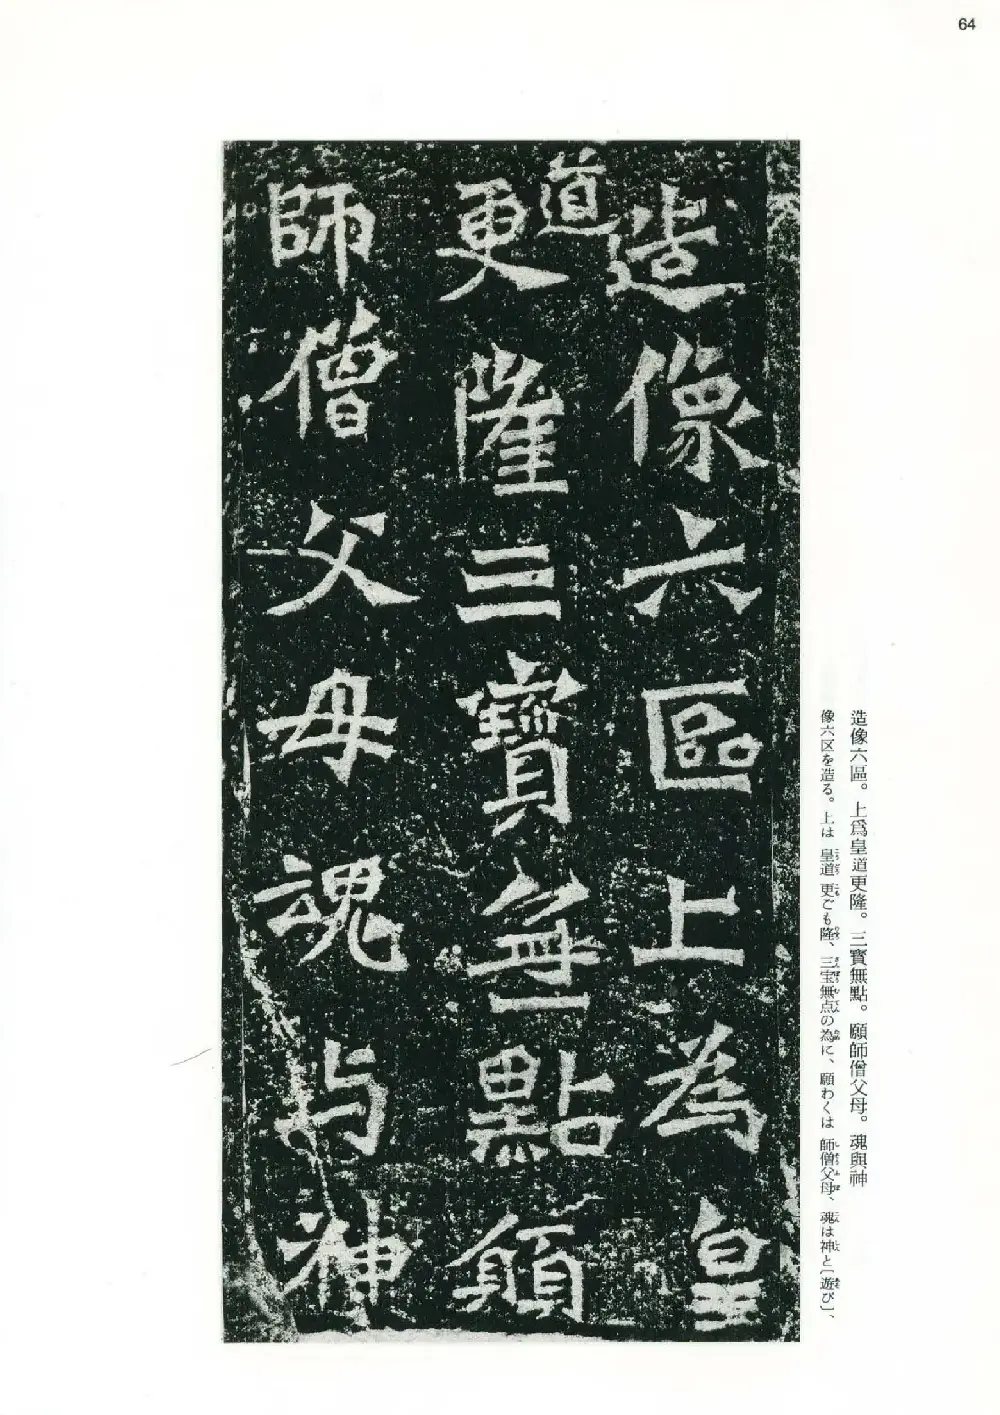 64
造像六區上為皇
道
更隆三寶無點願
師僧父母魂与神
造像六區。上爲皇道更隆。三寳無點。願師僧父母。魂與神
像六区を造る。上は皇道更ごも隆、三宝無点の為に、願わくは師僧父母、魂は神と〔遊び〕、